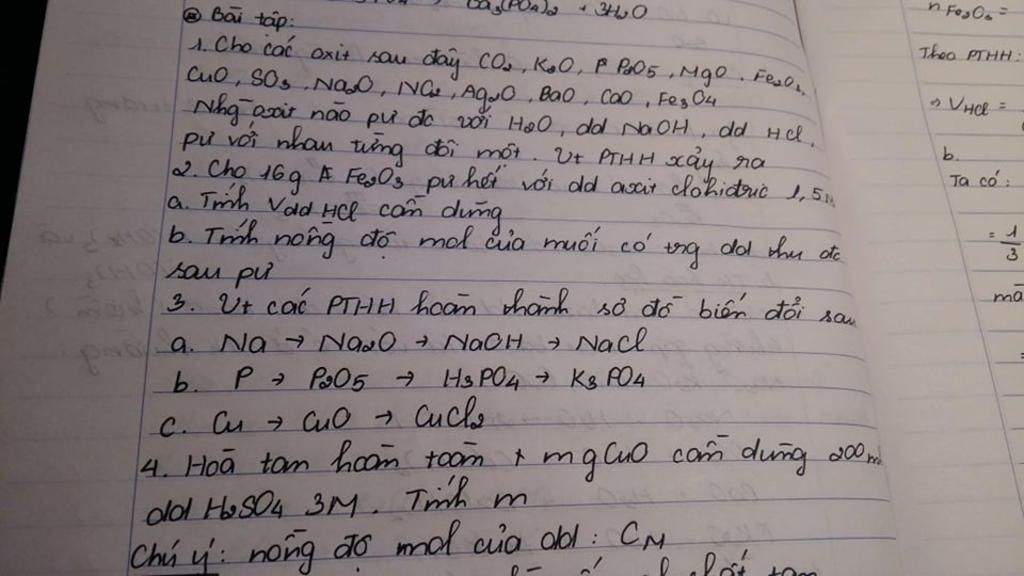 Ca3(PO4)2 + 3H2O
Bài tập:
1. Cho các oxit sau đây CO2, K2O, P2O5, MgO, Fe2O3,
CuO, SO3, Na2O, NO2, Ag2O, BaO, CaO, Fe3O4
Nhg~ oxit nào pư đc với H2O, dd NaOH, dd HCl,
pư với nhau từng đôi một. Vt PTHH xảy ra
2. Cho 16g Fe2O3 pư hết với dd axit clohiđric 1,5M
a. Tính Vdd HCl cần dùng
b. Tính nồng độ mol của muối có trg dd thu đc
sau pư
3. Vt các PTHH hoàn thành sơ đồ biến đổi sau
a. Na → Na2O → NaOH → NaCl
b. P → P2O5 → H3PO4 → K3PO4
c. Cu → CuO → CuCl2
4. Hoà tan hoàn toàn m g CuO cần dùng 200ml
dd H2SO4 3M. Tính m
Chú ý: nồng độ mol của dd: CM
n Fe2O3 =
Theo PTHH:
⇒ VHCl =
b.
Ta có:
= 1/3
mà
=